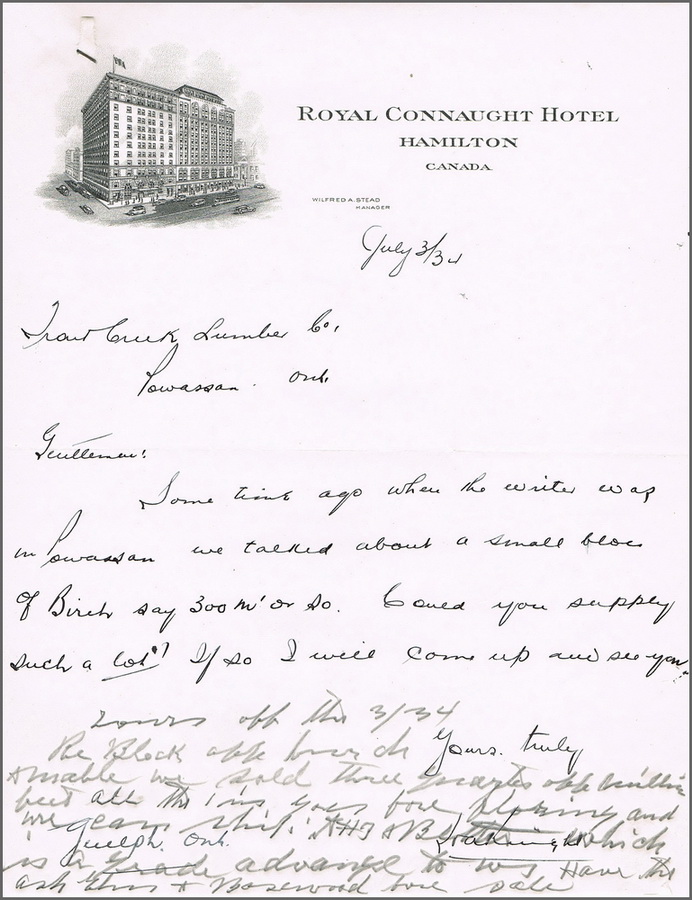 ROYAL CONNAUGHT HOTEL
HAMILTON
CANADA
WILFRED A. STEAD
MANAGER
July 3/34
Trout Creek Lumber Co,
Powassan. Ont.
Gentlemen:
Some time ago when the writer was
in Powassan we talked about a small bloc
of Birch say 300 m' or so. Could you supply
such a lot? If so I will come up and see you.
yours off the 3/34
Re Block off birch
Yours. truly
we sold three quarters off million
feet all the 1 ins yous for and
we can ship. which
Guelph. Ont.
is a Grade advance to us Have the
ash Elms + Basswood for sale